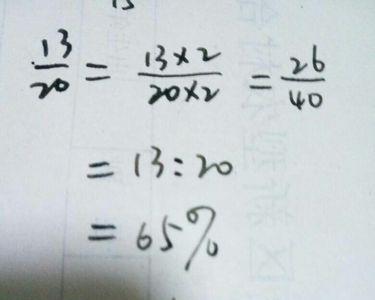 13/20 = 13×2/20×2 = 26/40
= 13:20
= 65%